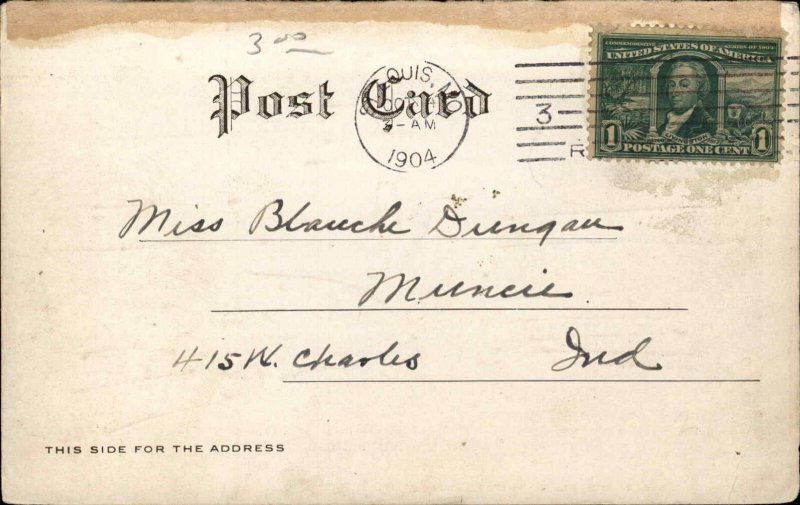 3 00
COMMEMORATIVE SERIES OF 1904
UNITED STATES OF AMERICA
1 POSTAGE ONE CENT 1
Post Card
LOUIS, MO
3-AM
1904
3
Miss Blanche Dungan
Muncie
415 W. Charles Ind
THIS SIDE FOR THE ADDRESS